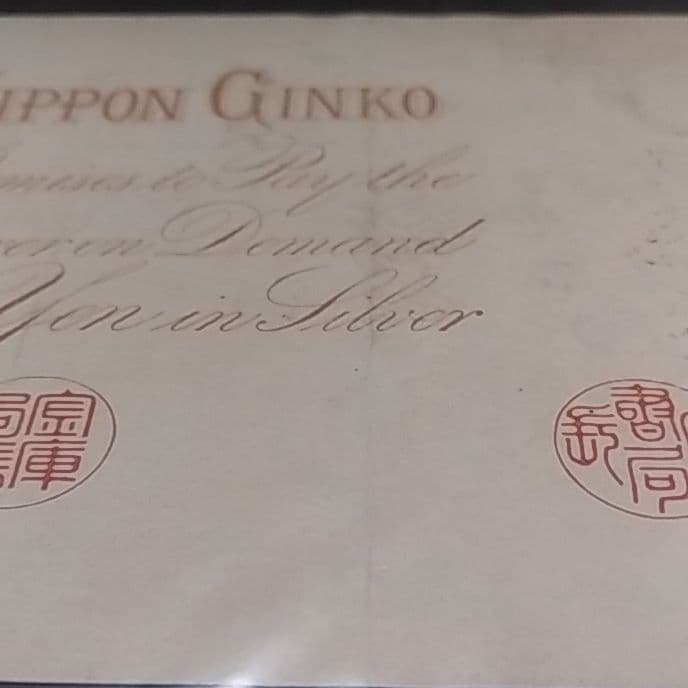 IPPON GINKO
mises to Pay the
rer on Demand
Yen in Silver
金庫
書局長